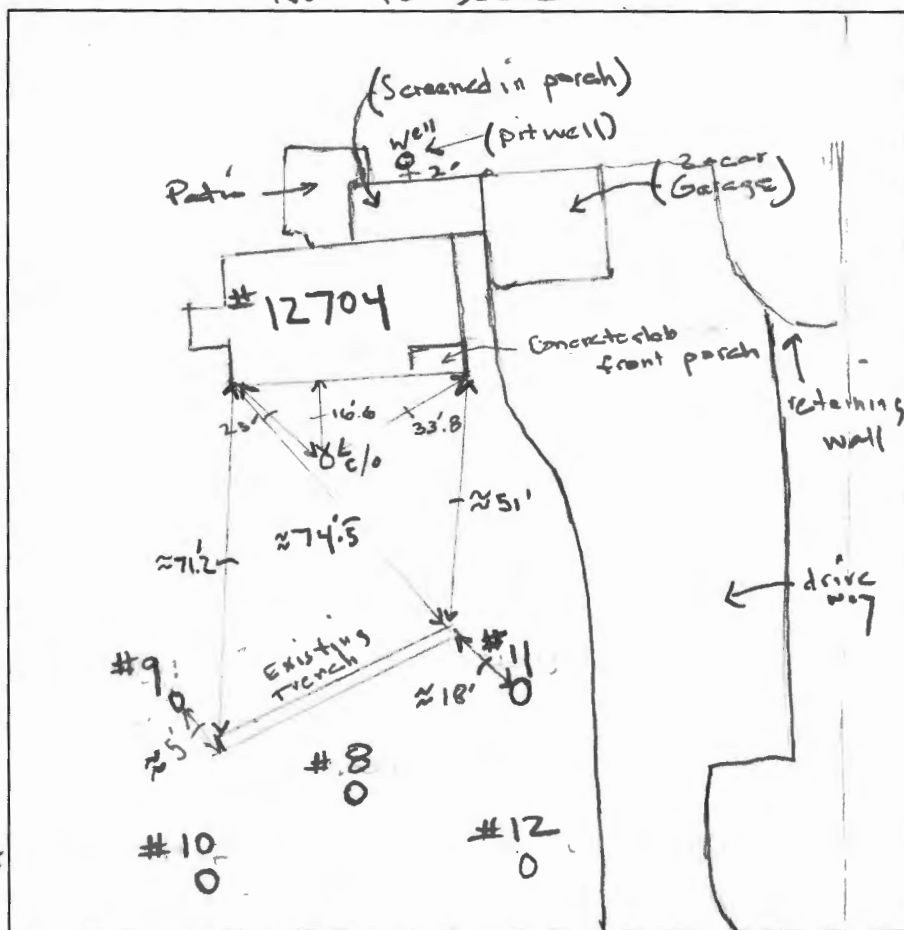 (Screened in porch)
Well
(pit well)
2'
Patio
(2-car
Garage)
# 12704
Concrete slab
front porch
retaining
wall
23'
16'.6
33'.8
c/o
≈51'
≈74'.5
≈71'.2
drive
Existing
Trench
#9
#11
≈18'
≈5'
#8
#10
#12